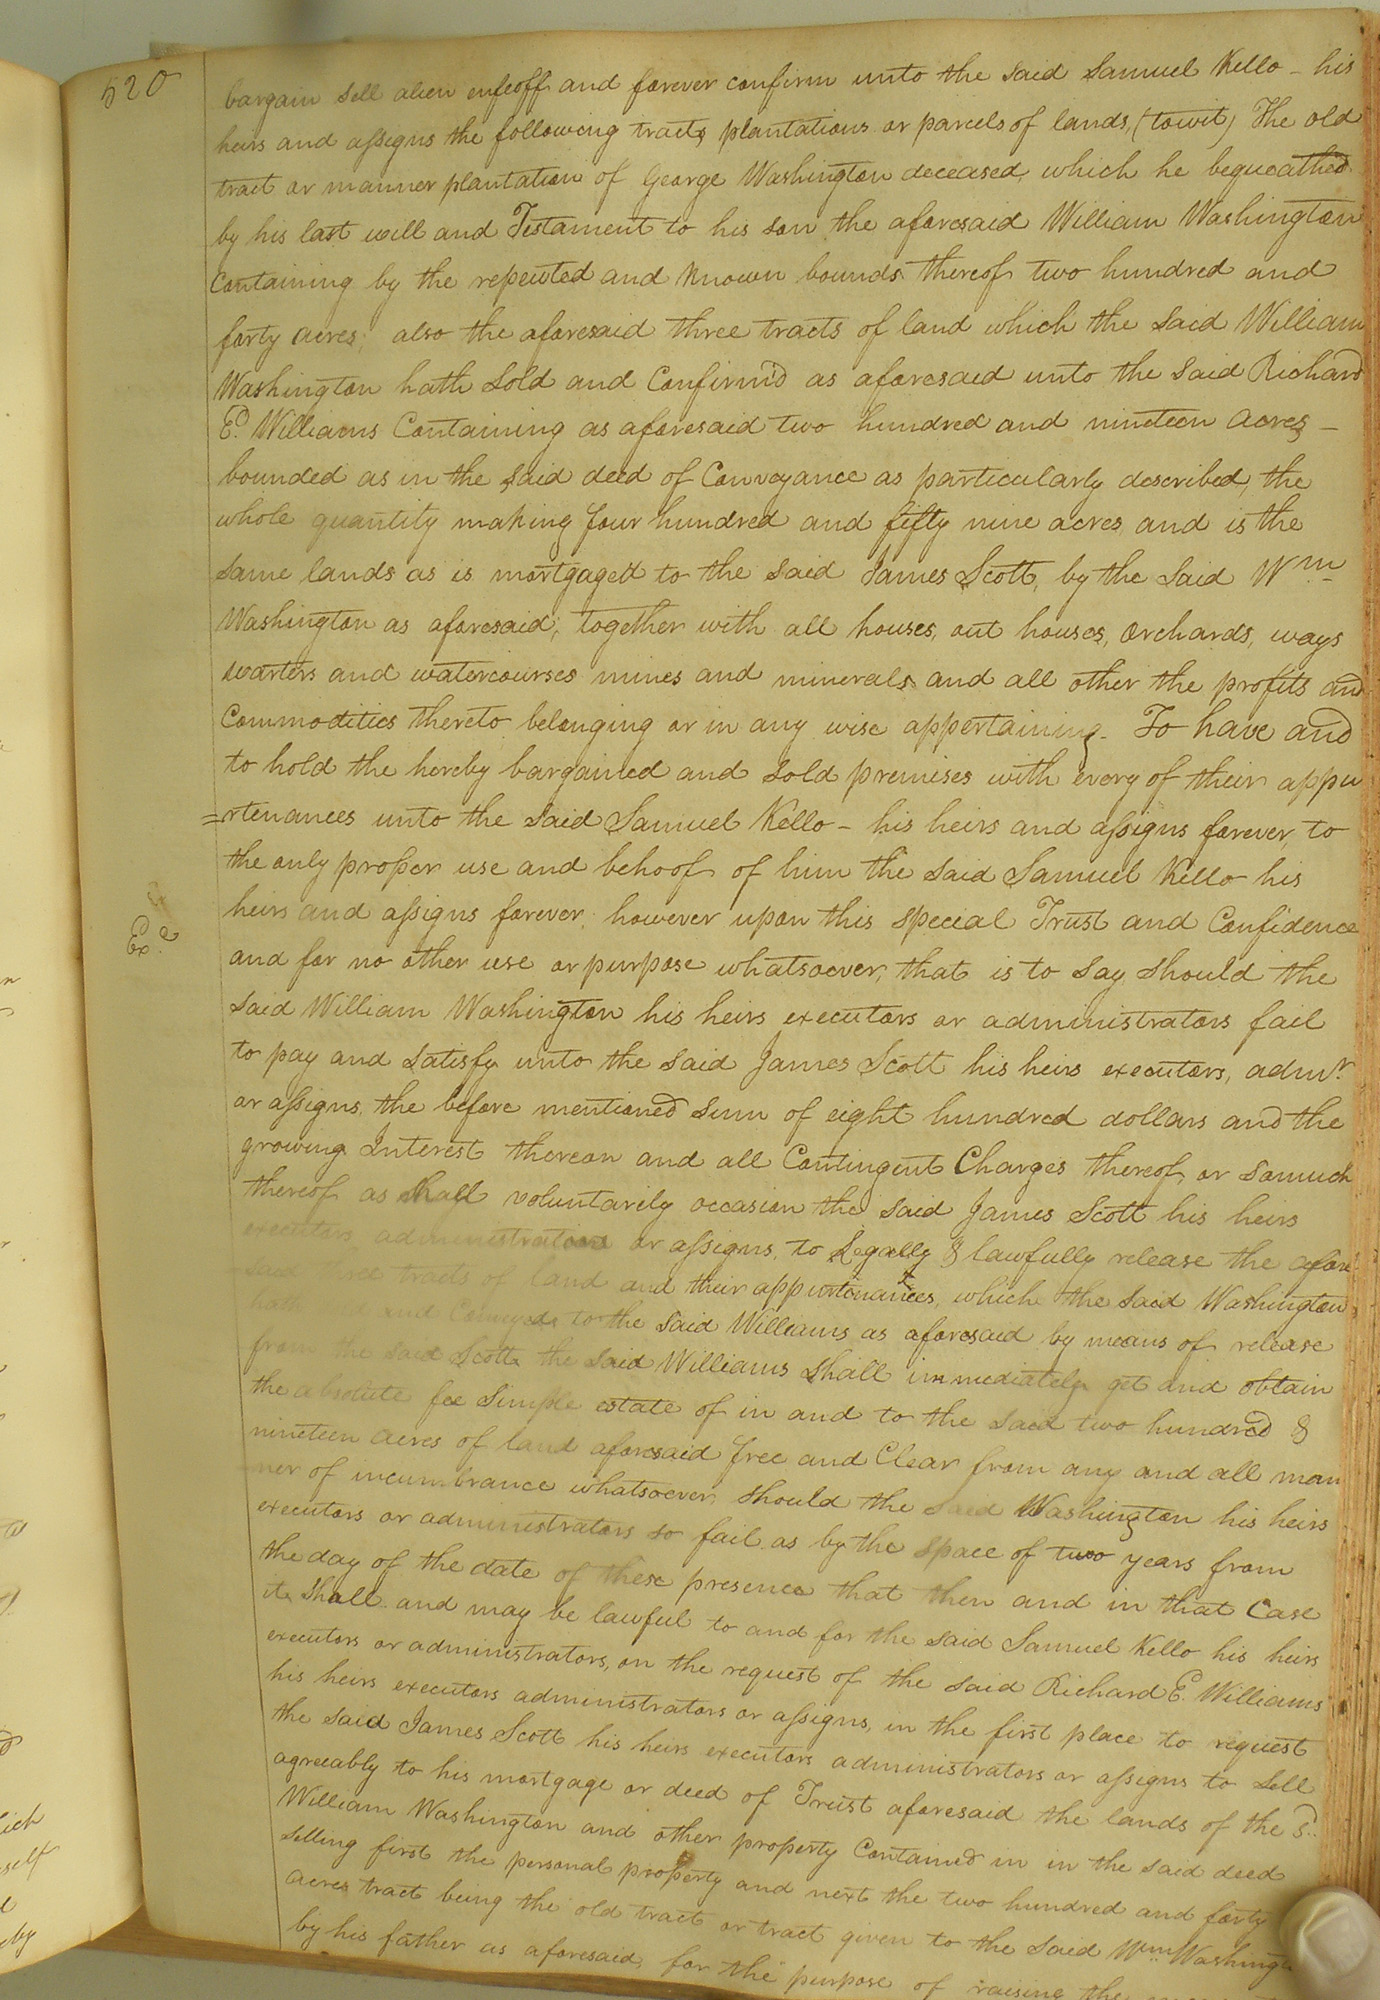 520
bargain sell alien enfeoff and forever confirm unto the said Samuel Kello - his
heirs and assigns the following tracts plantations or parcels of lands, (towit) The old
tract or manner plantation of George Washington deceased, which he bequeathed
by his last will and Testament to his son the aforesaid William Washington
Containing by the reputed and known bounds thereof two hundred and
forty acres; also the aforesaid three tracts of land which the said William
Washington hath sold and Confirm'd as aforesaid unto the said Richard
Ed. Williams Containing as aforesaid two hundred and nineteen acres -
bounded as in the said deed of Conveyance as particularly described, the
whole quantity making four hundred and fifty nine acres, and is the
same lands as is mortgaged to the said James Scott, by the said Wm
Washington as aforesaid, together with all houses, out houses, orchards, ways
warters and watercourses mines and minerals and all other the profits and
Commodities thereto belonging or in any wise appertaining. To have and
to hold the hereby bargained and sold premises with every of their appu
=rtenances unto the said Samuel Kello - his heirs and assigns forever, to
the only proper use and behoof of him the said Samuel Kello his
heirs and assigns forever, however upon this special Trust and Confidence
Exd.
and for no other use or purpose whatsoever, that is to say should the
said William Washington his heirs executors or administrators fail
to pay and satisfy unto the said James Scott his heirs executors, admr.
or assigns, the before mentioned sum of eight hundred dollars and the
growing Interest thereon and all Contingent Charges thereof, or somuch
thereof as shall voluntarily occasion the said James Scott his heirs
executors administrators or assigns, to Legally & lawfully release the afore
said three tracts of land and their appurtenances, which the said Washington
hath sold and Conveyed to the said Williams as aforesaid by means of release
from the said Scott the said Williams shall immediately get and obtain
the absolute fee simple estate of in and to the said two hundred &
nineteen acres of land aforesaid free and Clear from any and all man
ner of incumbrance whatsoever, should the said Washington his heirs
executors or administrators so fail as by the space of two years from
the day of the date of these presence that then and in that Case
it shall and may be lawful to and for the said Samuel Kello his heirs
executors or administrators, on the request of the said Richard Ed. Williams
his heirs executors administrators or assigns, in the first place to request
the said James Scott his heirs executors administrators or assigns to sell
agreeably to his mortgage or deed of Trust aforesaid the lands of the sd.
William Washington and other property Contained in in the said deed
selling first the personal property and next the two hundred and forty
acres tract being the old tract or tract given to the said Wm. Washingt
by his father as aforesaid, for the purpose of raising the